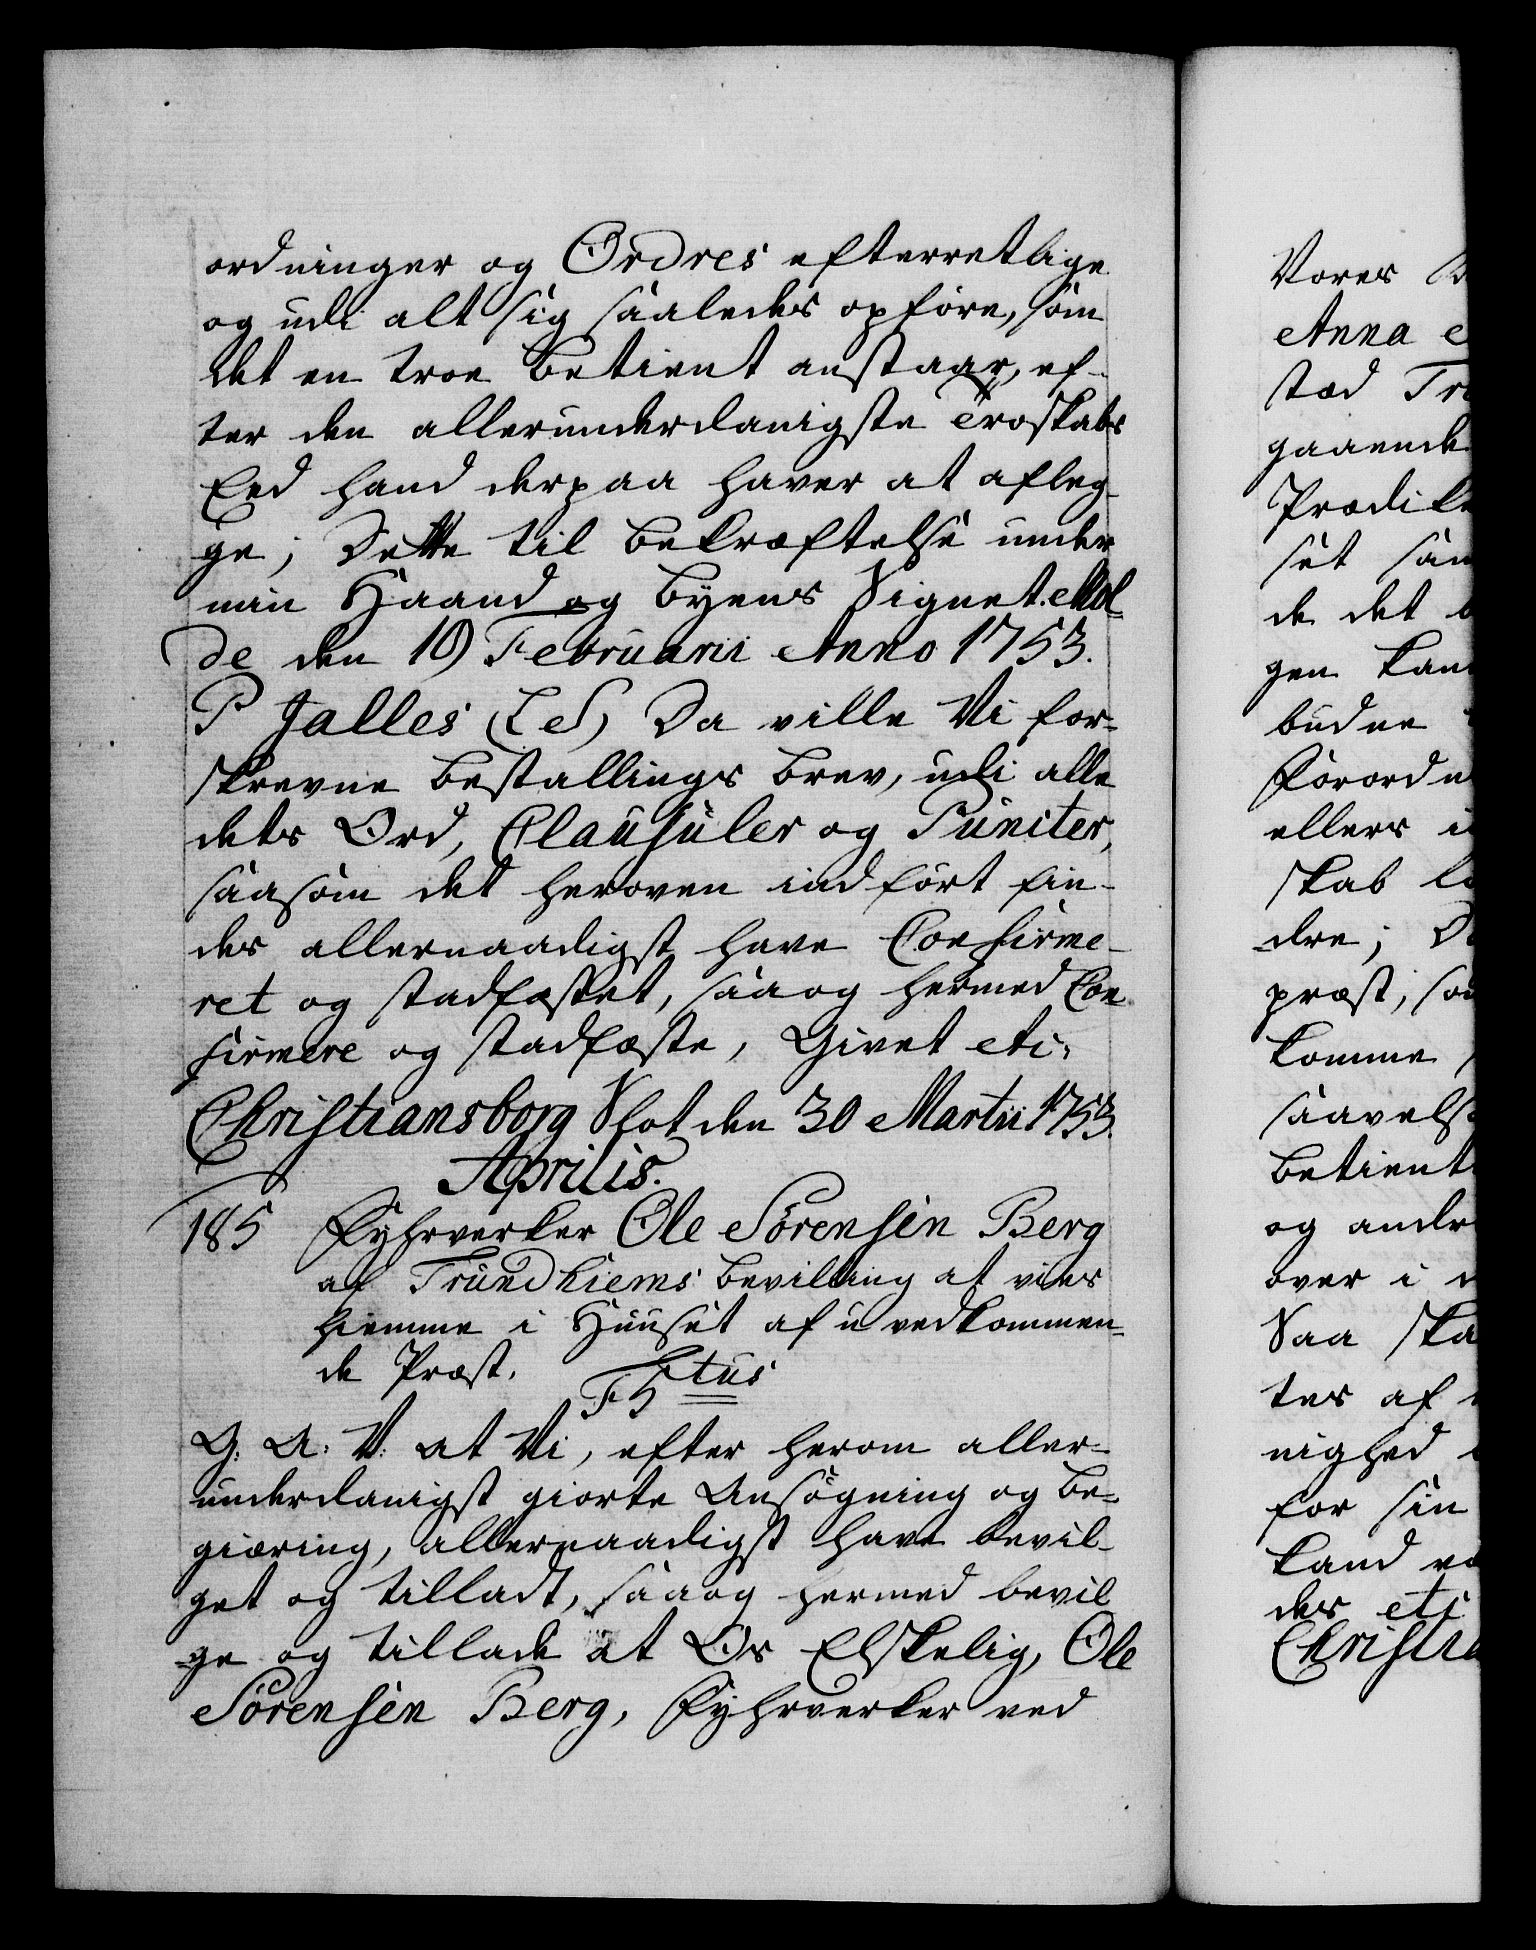 ordninger og Ordres efterretlige
og udi alt sig saaledes opføre, som
det en troe Betient anstaar, ef-
ter den allerunderdanigste Troskabs
Eed hand derpaa haver at afleg-
ge; Dette til Bekræftelse under
min Haand og Byens Signet. Mol-
de den 19 Februarii Anno 1753.
P Jalles (LS) Da ville Vi for-
skrevne Bestallings Brev, udi alle
dets Ord, Clausuler og Puncter,
saasom det heroven indført fin-
des allernaadigst have Confirme-
ret og stadfæstet, saa og hermed Con
firmere og stadfæste, Givet etc:
Christiansborg Slot den 30 Martii 1753.
Aprilis.
185 Fyhrverker Ole Sørensen Berg
af Trundhiems Bevilling at vies
hiemme i Huuset af uvedkommen-
de Præst.
F 5tus
G: A: V: at Vi, efter herom aller-
underdanigst giorte Ansøgning og Be-
giæring, allernaadigst have bevil-
get og tilladt, saa og hermed bevil
ge og tillade at Os Elskelig, Ole
Sørensen Berg, Fyhrverker ved
Vores
Anna
stad
gaaende
Prædike
set
de det
gen
budne
Forordn
ellers
skab
dre;
præst,
komme
saavels
Betient
og andr
over i
Saa ska
tes af
nighed
for sin
kand
des etc
Christia